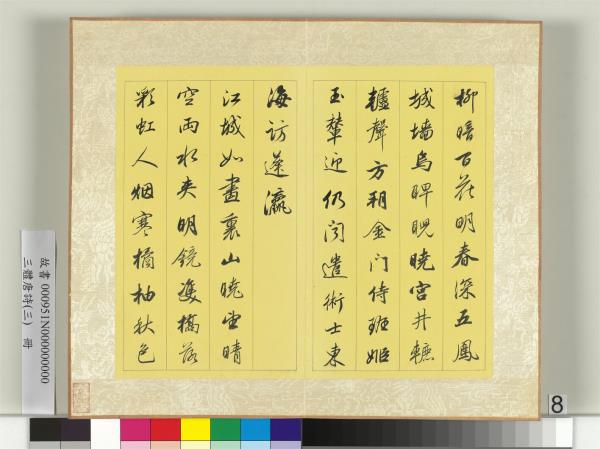 柳暗百花明春深五鳳
城墻烏睥睨曉宮井轆
轤聲方朔金门侍班姬
玉輦迎仍闻遣術士東
海訪蓬瀛
江城如畫裏山曉望晴
空兩水夾明鏡雙橋落
彩虹人烟寒橘柚秋色
故書 000951N000000000
三體唐詩(三) 冊
8